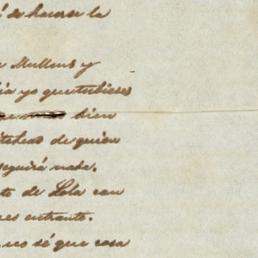 de hacerse la
Mullens y
yo que tubiese
bien
de quien
seguirá nada.
to de Lola con
mes entrante.
no sé que cosa